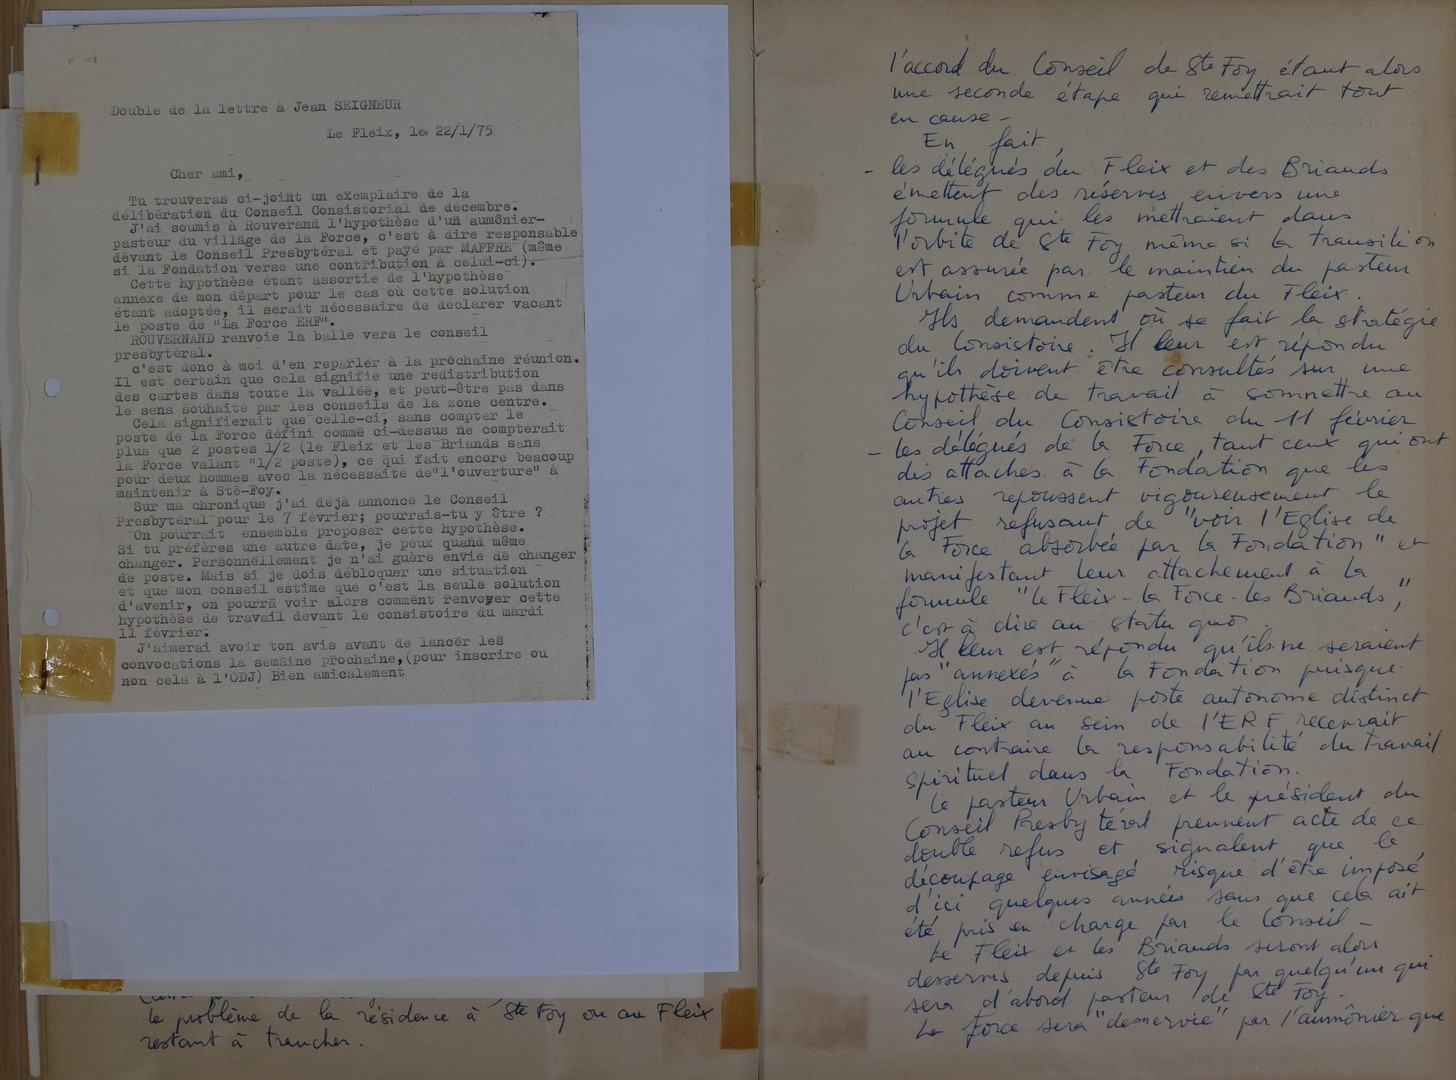 Double de la lettre à Jean SEIGNEUR
Le Fleix, le 22/1/75
Cher ami,
Tu trouveras ci-joint un exemplaire de la
délibération du Conseil Consistorial de décembre.
J'ai soumis à Rouverand l'hypothèse d'un aumônier-
pasteur du village de la Force, c'est à dire responsable
devant le Conseil Presbytéral et payé par MAFFRE (même
si la Fondation verse une contribution à celui-ci).
Cette hypothèse étant assortie de l'hypothèse
annexe de mon départ pour le cas où cette solution
étant adoptée, il serait nécessaire de déclarer vacant
le poste de "La Force ERF".
ROUVERNAND renvoie la balle vers le conseil
presbytéral.
c'est donc à moi d'en reparler à la prochaine réunion.
Il est certain que cela signifie une redistribution
des cartes dans toute la vallée, et peut-être pas dans
le sens souhaité par les conseils de la zone centre.
Cela signifierait que celle-ci, sans compter le
poste de la Force défini comme ci-dessus ne compterait
plus que 2 postes 1/2 (le Fleix et les Briands sans
la Force valant "1/2 poste), ce qui fait encore beaucoup
pour deux hommes avec la nécessité de"l'ouverture" à
maintenir à Ste-Foy.
Sur ma chronique j'ai déjà annoncé le Conseil
Presbytéral pour le 7 février; pourrais-tu y être ?
On pourrait ensemble proposer cette hypothèse.
Si tu préfères une autre date, je peux quand même
changer. Personnellement je n'ai guère envie de changer
de poste. Mais si je dois débloquer une situation
et que mon conseil estime que c'est la seule solution
d'avenir, on pourra voir alors comment renvoyer cette
hypothèse de travail devant le consistoire du mardi
11 février.
J'aimerai avoir ton avis avant de lancer les
convocations la semaine prochaine,(pour inscrire ou
non cela à l'ODJ) Bien amicalement
le problème de la résidence à Ste Foy ou au Fleix
restant à trancher.
l'accord du Conseil de Ste Foy étant alors
une seconde étape qui remettrait tout
en cause -
En fait,
- les délégués du Fleix et des Briands
émettent des réserves envers une
formule qui les mettraient dans
l'orbite de Ste Foy même si la transition
est assurée par le maintien du pasteur
Urbain comme pasteur du Fleix.
Ils demandent où se fait la stratégie
du Consistoire. Il leur est répondu
qu'ils doivent être consultés sur une
hypothèse de travail à soumettre au
Conseil du Consistoire du 11 février
- les délégués de la Force, tant ceux qui ont
des attaches à la Fondation que les
autres repoussent vigoureusement le
projet refusant de "voir l'Eglise de
la Force absorbée par la Fondation" et
manifestant leur attachement à la
formule "le Fleix - la Force - les Briands,"
c'est à dire au statu quo.
Il leur est répondu qu'ils ne seraient
pas "annexés" à la Fondation puisque
l'Eglise devenue poste autonome distinct
du Fleix au sein de l'ERF recevrait
au contraire la responsabilité du travail
spirituel dans la Fondation.
Le pasteur Urbain et le président du
Conseil Presbytéral prennent acte de ce
double refus et signalent que le
découpage envisagé risque d'être imposé
d'ici quelques années sans que cela ait
été pris en charge par le Conseil -
Le Fleix et les Briands seront alors
desservis depuis Ste Foy par quelqu'un qui
sera d'abord pasteur de Ste Foy -
La Force sera "desservie" par l'aumônier que